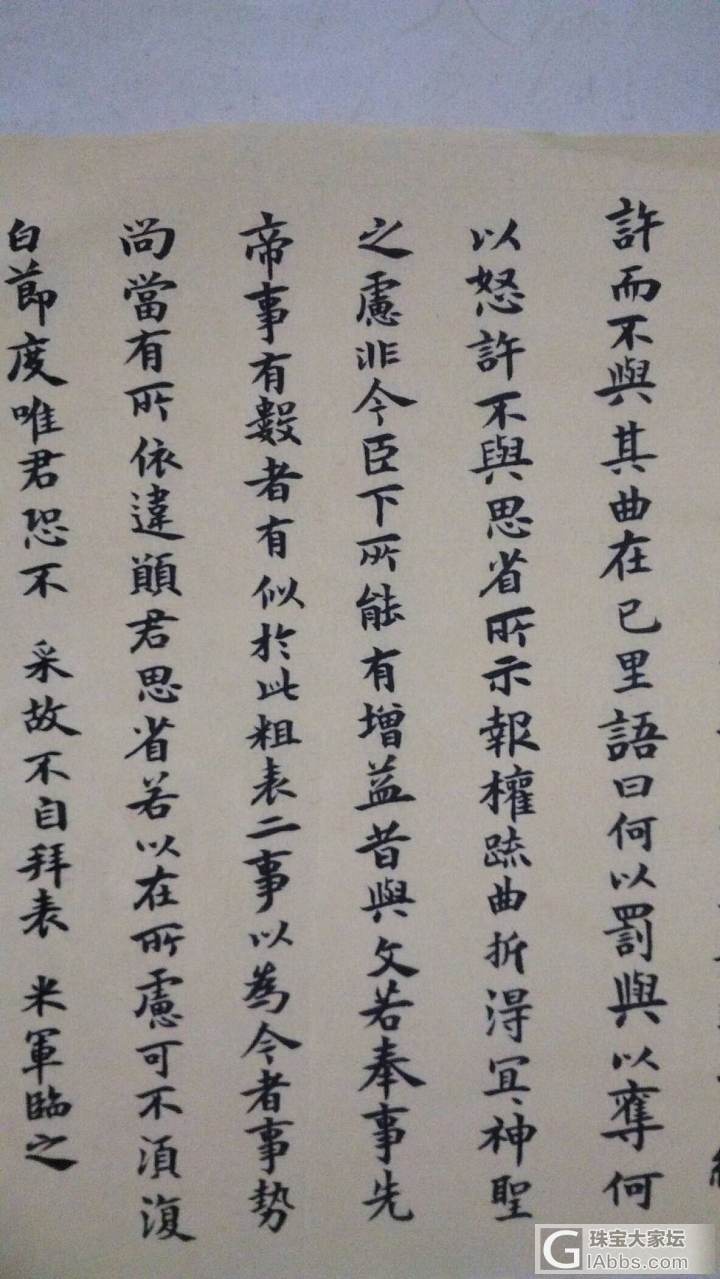 許而不與其曲在已里語曰何以罰與以奪何
以怒許不與思省所示報權疏曲折得冝神聖
之慮非今臣下所能有增益昔與文若奉事先
帝事有數者有似於此粗表二事以為今者事勢
尚當有所依違願君思省若以在所慮可不須復
白節度唯君恐不 采故不自拜表 米軍臨之
G 珠宝大家坛
GIAbbs.com